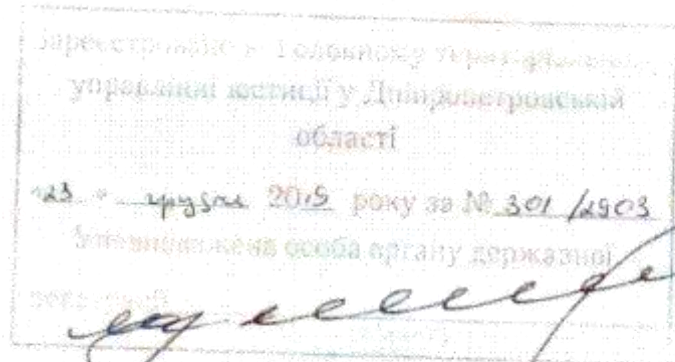 Зареєстровано в Головному територіальному
управлінні юстиції у Дніпропетровській
області
"23" грудня 2015 року за № 301/2903
Уповноважена особа органу державної
реєстрації